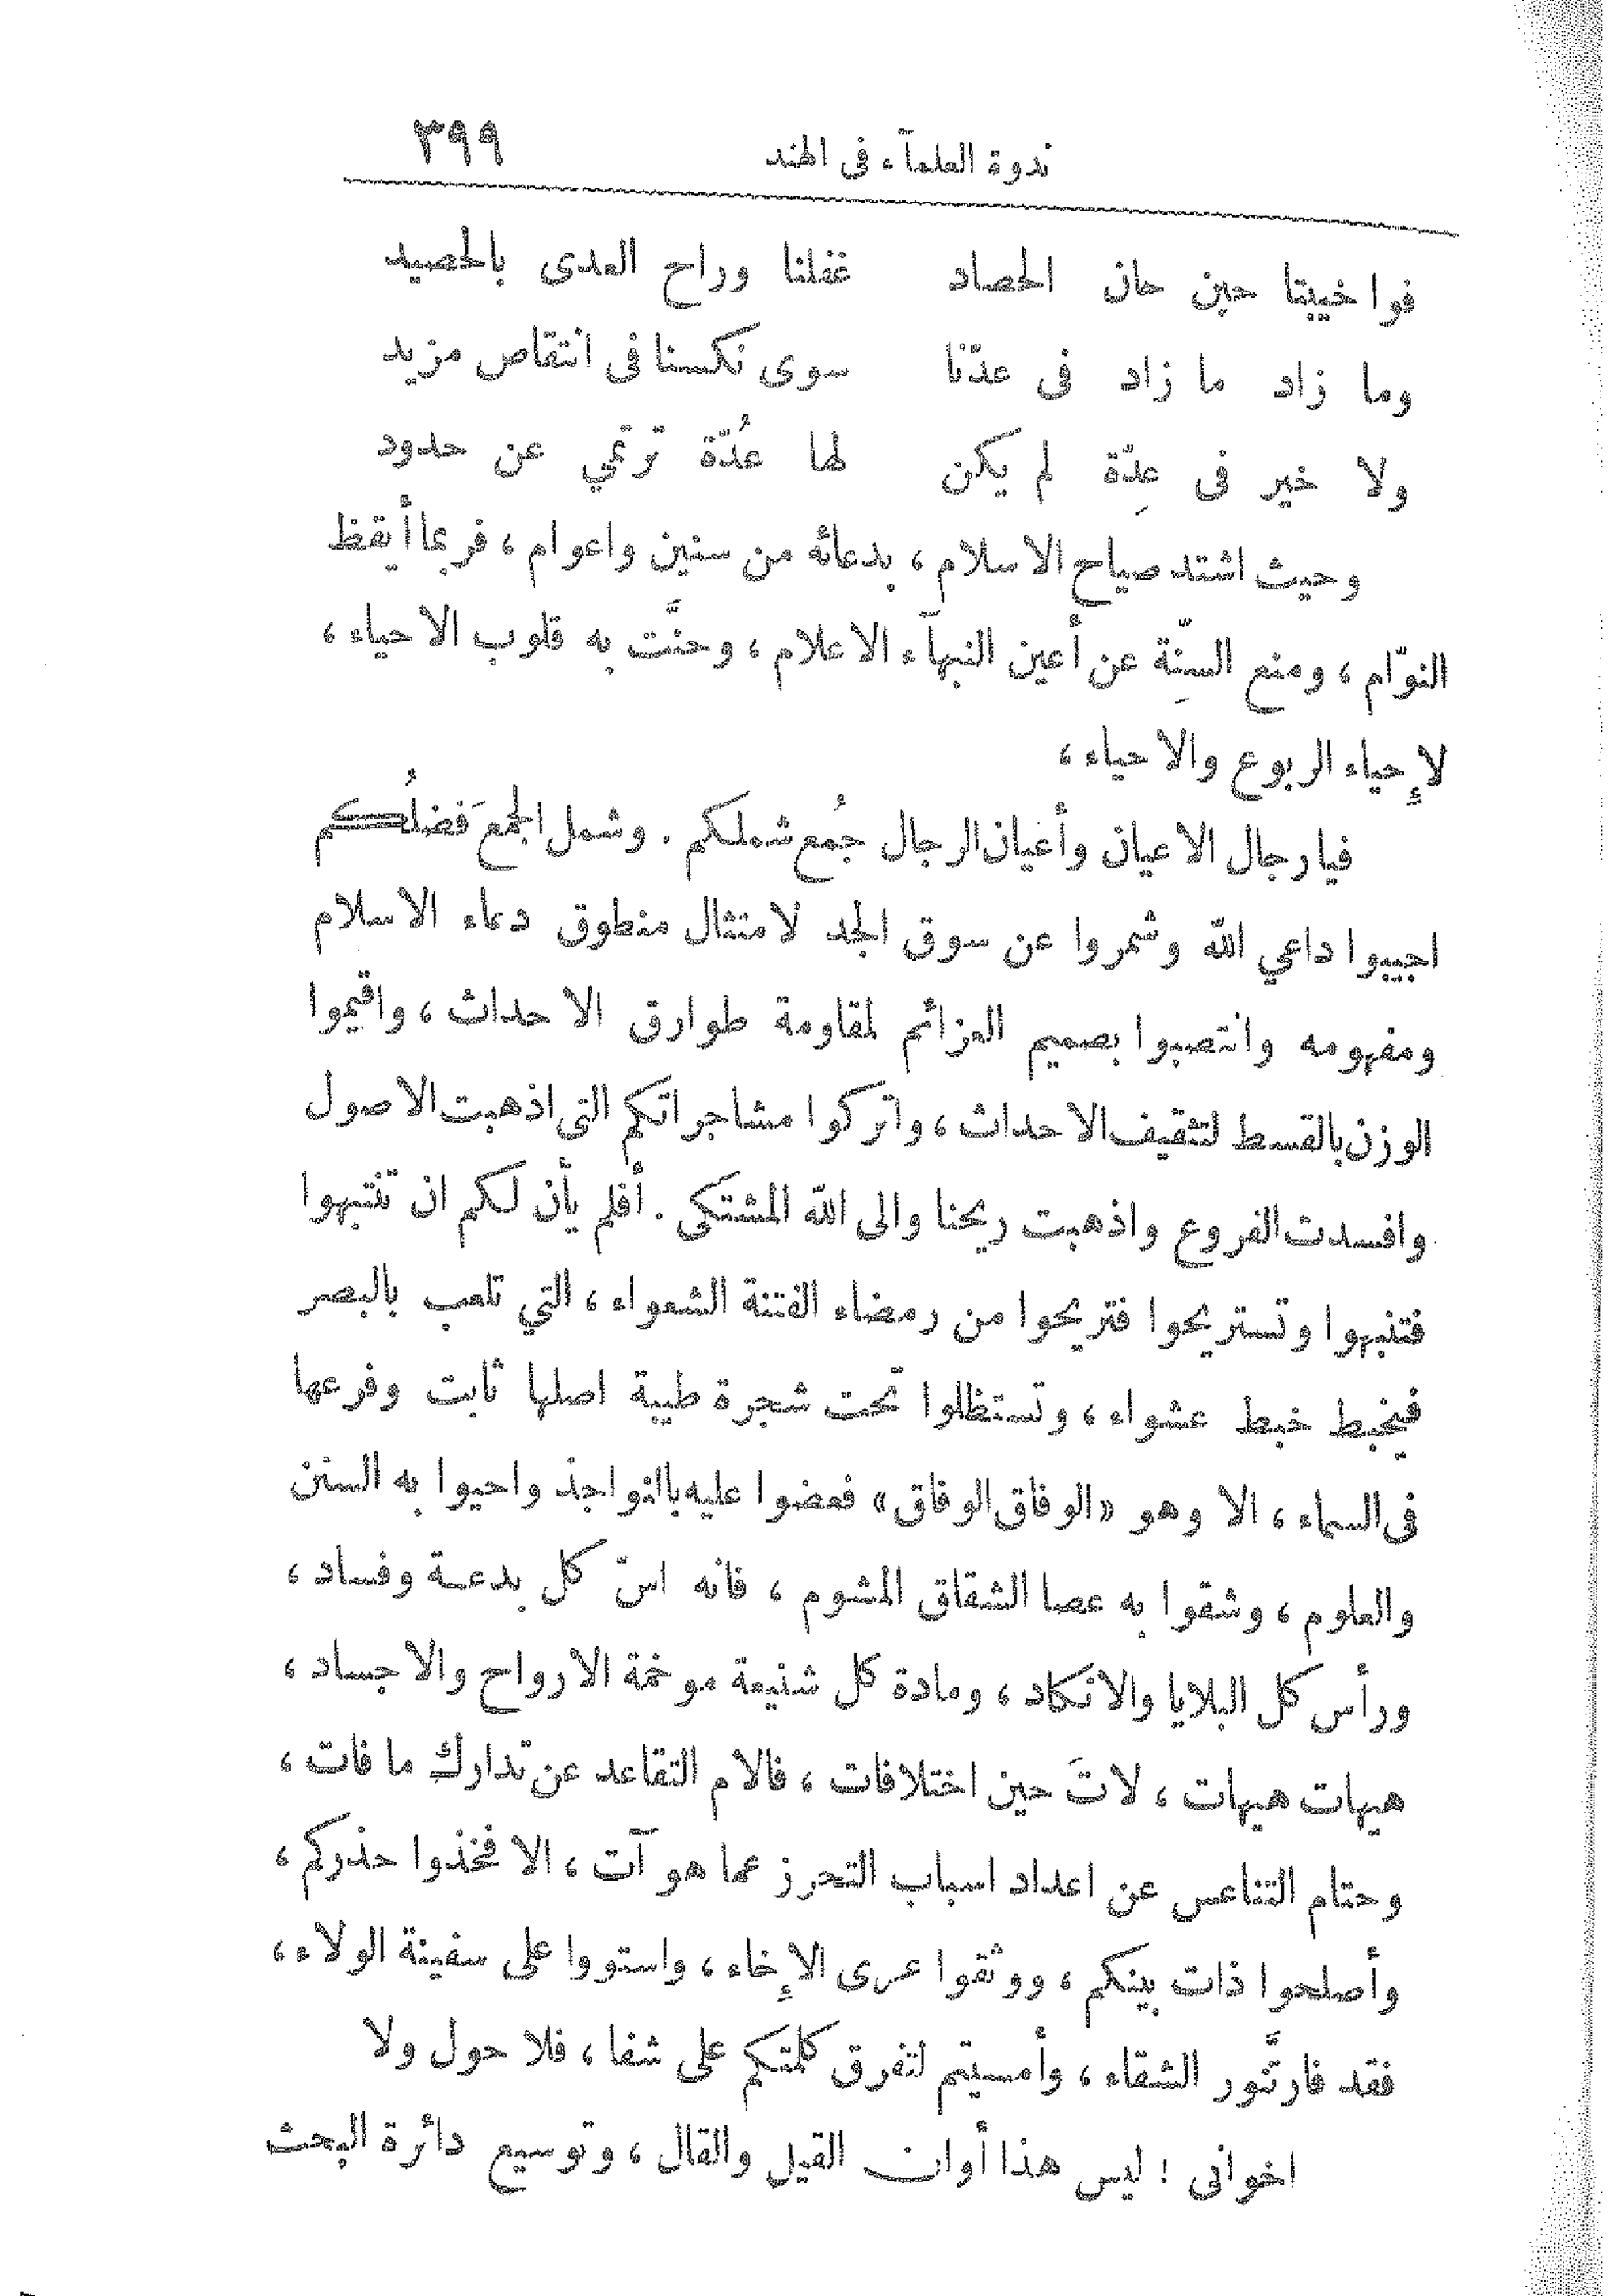 ندوة العلمآء فى الهند ٣٩٩
فوا خيبتا حين حان الحصاد غفلنا وراح العدى بالحصيد
وما زاد ما زاد فى عدّنا سوى نكسنا فى انتقاص مزيد
ولا خير فى عِدّة لم يكن لها عُدّة ترتمي عن حدود
وحيث اشتد صياح الاسلام ، بدعائه من سنين واعوام ، فربما أيقظ
النوّام ، ومنع السِنّة عن أعين النبهآء الاعلام ، وحنَّت به قلوب الاحياء ،
لإحياء الربوع والاحياء ،
فيا رجال الاعيان وأعيان الرجال جُمع شملكم . وشمل الجمعَ فضلُكم
اجيبوا داعي الله وشمروا عن سوق الجد لامتثال منطوق دعاء الاسلام
ومفهومه وانتصبوا بصميم العزائم لمقاومة طوارق الاحداث ، واقيموا
الوزن بالقسط لتثقيف الاحداث ، واتركوا مشاجراتكم التى اذهبت الاصول
وافسدت الفروع واذهبت ريحنا والى الله المشتكى . أفلم يأن لكم ان تنتبهوا
فتنبهوا وتستريحوا فتريحوا من رمضاء الفتنة الشعواء ، التي تلعب بالبصر
فيخبط خبط عشواء ، وتستظلوا تحت شجرة طيبة اصلها ثابت وفرعها
فى السماء ، الا وهو «الوفاق الوفاق» فعضوا عليه بالنواجذ واحيوا به السنن
والعلوم ، وشقوا به عصا الشقاق المشوم ، فانه اسّ كل بدعة وفساد ،
ورأس كل البلايا والانكاد ، ومادة كل شنيعة موخمة الارواح والاجساد ،
هيهات هيهات ، لاتَ حين اختلافات ، فالام التقاعد عن تدارك ما فات ،
وحتام التناعس عن اعداد اسباب التحرز عما هو آت ، الا فخذوا حذركم ،
وأصلحوا ذات بينكم ، ووثقوا عرى الإخاء ، واستووا على سفينة الولاء ،
فقد فار تنَّور الشقاء ، وأمسيتم لتفرق كلمتكم على شفا ، فلا حول ولا
اخوانى ! ليس هذا أوان القيل والقال ، وتوسيع دائرة البحث